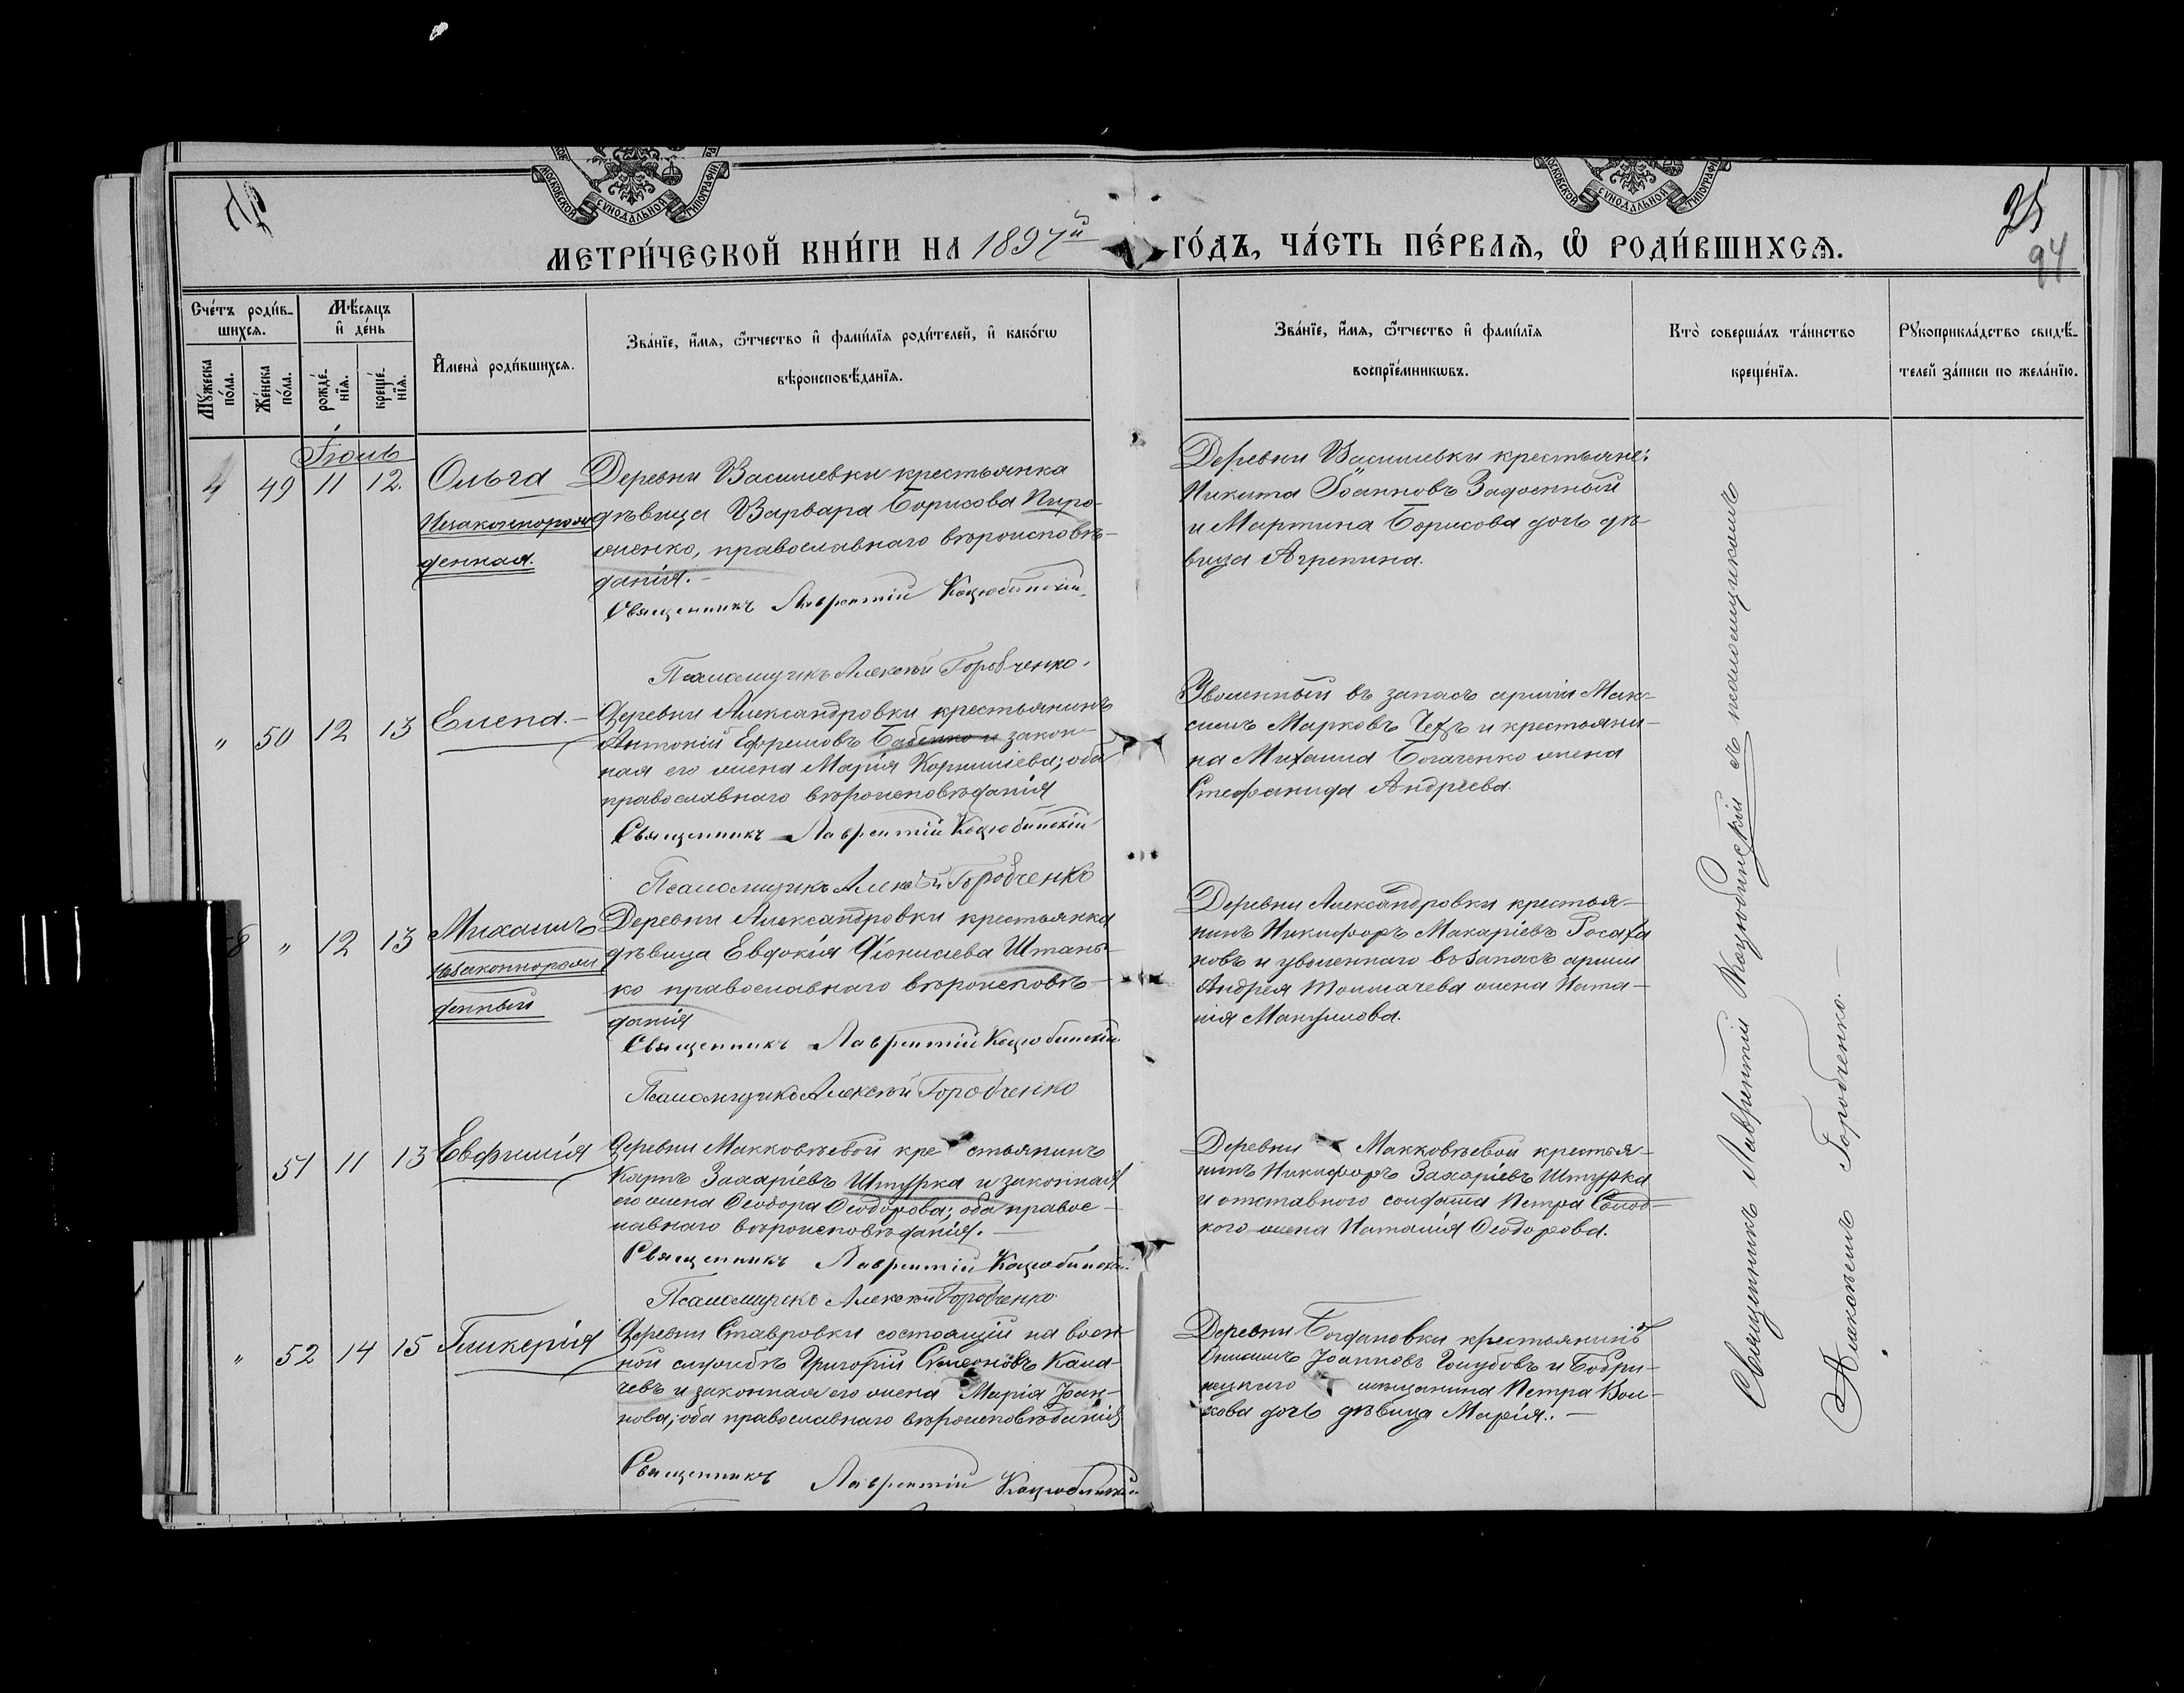 МОСКОВСКОЙ СУНОДАЛЬНОЙ ТИПОГРАФІИ
МОСКОВСКОЙ СУНОДАЛЬНОЙ ТИПОГРАФІИ
25
94
МЕТРИ́ЧЕСКОЙ КНИ́ГИ НА 1897й ГО́ДЪ, ЧА́СТЬ ПЕ́РВАѦ, Ѽ РОДИ́ВШИХСѦ.
Сче́тъ роди́в-
шихсѧ.
Мѣ́сѧцъ
и҆ де́нь
Мꙋ́жеска по́ла.
Же́нска по́ла.
рожде́-нїѧ.
креще́-нїѧ.
И҆мена̀ роди́вшихсѧ.
Зва́нїе, и҆́мѧ, ѻ҆́тчество и҆ фами́лїѧ роди́телей, и҆ како́гѡ
вѣроисповѣ́данїѧ.
Зва́нїе, и҆́мѧ, ѻ҆́тчество и҆ фами́лїѧ
воспрїе́мникѡвъ.
Кто̀ соверша́лъ та́инство
креще́нїѧ.
Рꙋкоприкла́дство свидѣ́-
телей за́писи по жела́нїю.
Іюль
49 11 12. Ольга
Незаконнорож
денная.
Деревни Василевки крестьянка
дѣвица Варвара Борисова Пиро-
женко, православнаго вѣроисповѣ-
данія.-
Священникъ Лаврентій Коцюбинскій.
Псаломщикъ Алексѣй Горобченко.
Деревни Василевки крестьяне:
Никита Іоанновъ Задоенный
и Мартина Борисова дочь дѣ-
вица Агрепина.
" 50 12 13 Елена.-
Деревни Александровки крестьянинъ
Антоній Ефремовъ Бабенко и закон-
ная его жена Марія Корнилієва; оба
православнаго вѣроисповѣданія
Священникъ Лаврентій Коцюбинскій
Псаломщикъ Алексѣй Горобченко
Уволенный въ запасъ арміи Мак-
симъ Марковъ Чехъ и крестьяни-
на Михаила Богаченко жена
Стефанида Андреева.
8 " 12 13 Михаилъ
Незаконнорож
денный
Деревни Александровки крестьянка
дѣвица Евдокія Діонисіева Штань-
ко православнаго вѣроисповѣ-
данія
Священникъ Лаврентій Коцюбинскій
Псаломщикъ Алексѣй Горобченко
Деревни Александровки крестья-
нинъ Никифоръ Макаріевъ Росаха
новъ и уволеннаго въ запасъ арміи
Андрея Толмачева жена Ната-
лія Мануилова.
51 11 13 Евфимія
Деревни Макковѣевой крестьянинъ
Карпъ Захаріевъ Штурка и законная
его жена Ѳеодора Ѳеодорова; оба правос-
лавнаго вѣроисповѣданія.-
Священникъ Лаврентій Коцюбинскій
Псаломщикъ Алексѣй Горобченко.
Деревни Макковѣевой крестья-
нинъ Никифоръ Захаріевъ Штурка
и отставного солдата Петра Солод-
кого жена Наталія Ѳеодорова.
" 52 14 15 Гликерія
Деревни Ставровки состоящій на воен-
ной службѣ Григорій Симеоновъ Кала-
чевъ и законная его жена Марія Іоан-
нова; оба православнаго вѣроисповѣданія
Священникъ Лаврентій Коцюбинскій
Деревни Богдановки крестьянинъ
Онисимъ Іоанновъ Голубовъ и Бобри-
нецкаго мѣщанина Петра Вол-
кова дочь дѣвица Марія.-
Священникъ Лаврентій Коцюбинскій съ псаломщикомъ
Алексѣемъ Горобченко.-